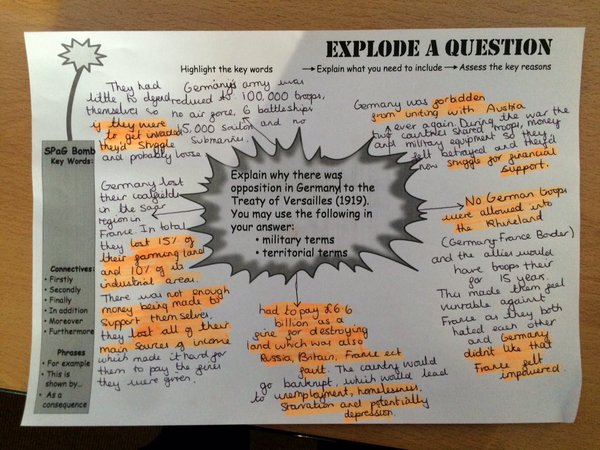 EXPLODE A QUESTION
Highlight the key words → Explain what you need to include → Assess the key reasons
They had
little to defend
themselves so
if they were
to get invaded
they'd struggle
and probably loose
Germany's army was
reduced to 100,000 troops,
no air force, 6 battleships
15,000 sailors and no
Submarines.
Germany was forbidden
from uniting with Austria
ever again. During the war the
two countries shared troops, money
and military equipment so they
felt betrayed and they'd
now struggle for financial
support.
SPaG Bomb
Key Words:
Connectives:
• Firstly
• Secondly
• Finally
• In addition
• Moreover
• Furthermore
Phrases
• For example
• This is
shown by...
• As a
consequence
Germany lost
their coalfields
in the Saar
region in
France. In total
they lost 15% of
their farming land
and 10% of its
industrial area.
There was not enough
money being made to
support themselves.
they lost all of their
main sources of income
which made it hard for
them to pay the fines
they were given.
Explain why there was
opposition in Germany to the
Treaty of Versailles (1919).
You may use the following in
your answer:
• military terms
• territorial terms
No German troops
were allowed into
the Rhineland
(Germany-France Border)
and the allies would
have troops their
for 15 year.
This made them feel
vunrable against
France as they both
hated each other
and Germany
didnt like that
France felt
empowered.
had to pay £6.6
billion as a
fine for destroying
land which was also
Russia, Britain, France ect
fault. The country would
go bankrupt, which would lead
to unemployment, homelessness,
Starvation and potentially
depression.